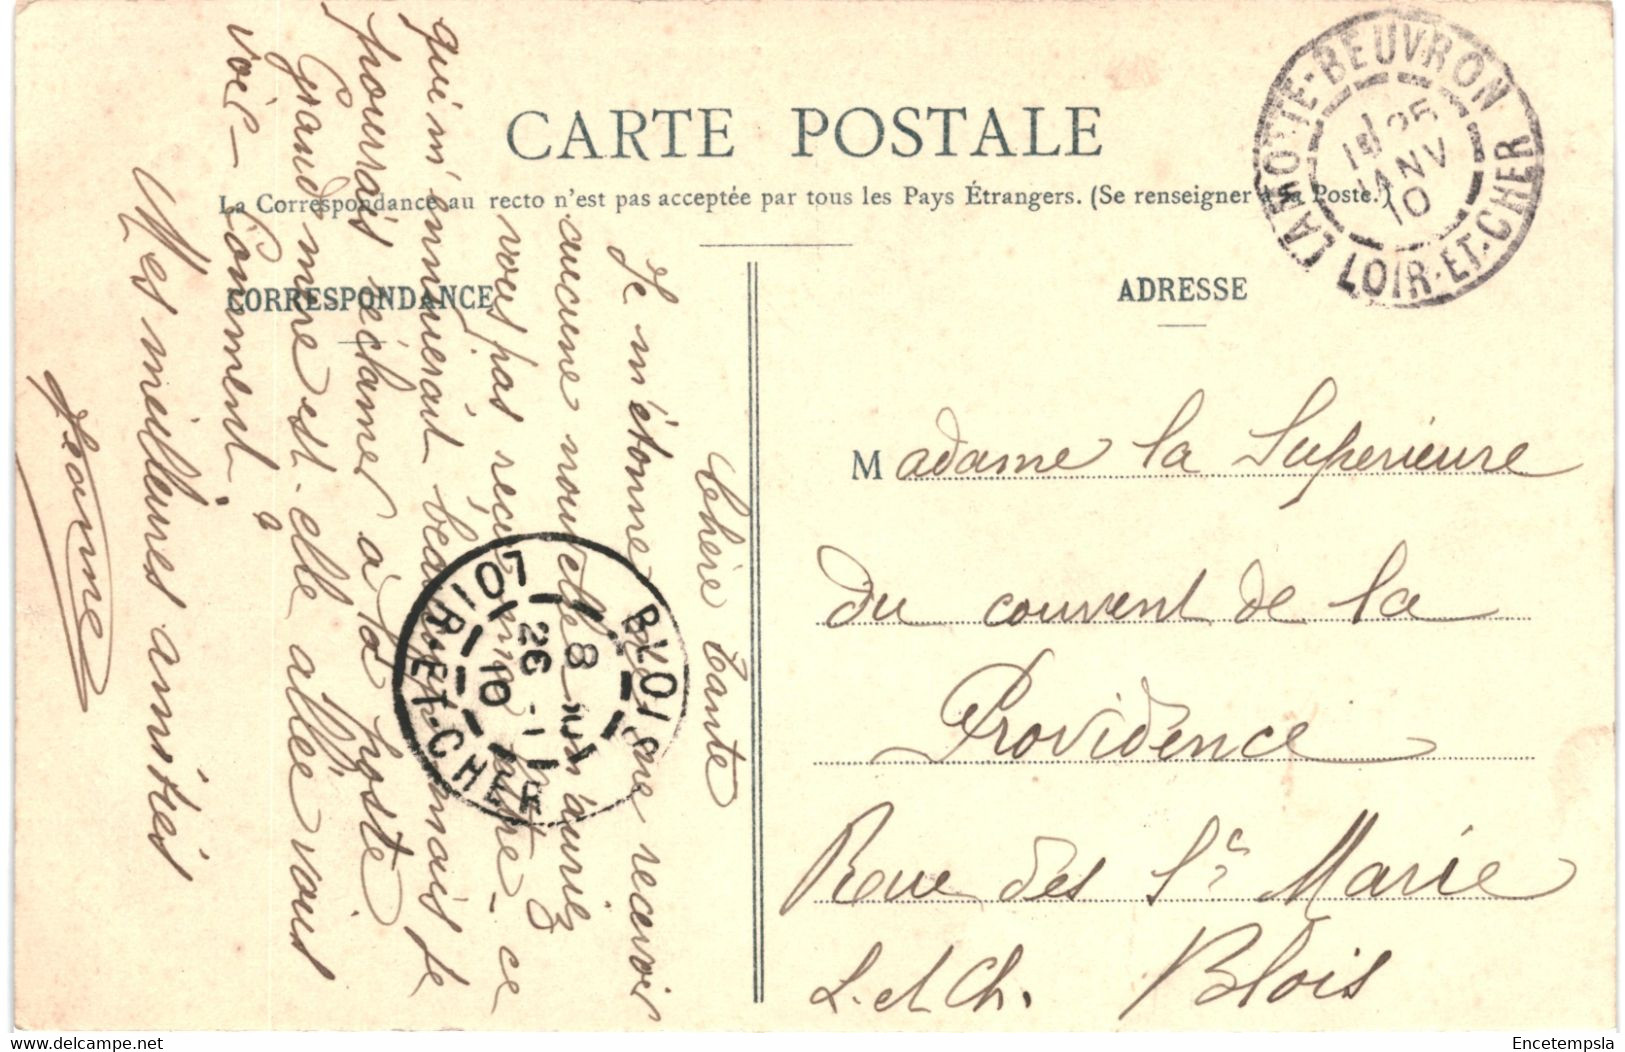 CARTE POSTALE
La Correspondance au recto n'est pas acceptée par tous les Pays Étrangers. (Se renseigner à la Poste.)
CORRESPONDANCE
ADRESSE
Chère tante
Je m'étonne de ne recevoir
aucune nouvelle n'auriez
vous pas reçu ma lettre - ce
qui m'ennuierait beaucoup mais je
pourrais réclamer à la poste
Grand mère est-elle allée vous
voir - Comment ?
Mes meilleures amitiés
Jeanne
Madame la Superieure
du couvent de la
Providence
Rue des Stes Marie
L. et Ch. Blois
LAMOTTE-BEUVRON
25
JANV
10
LOIR-ET-CHER
BLOIS
8
26 -1
10
LOIR-ET-CHER
Encetempsla
delcampe.net